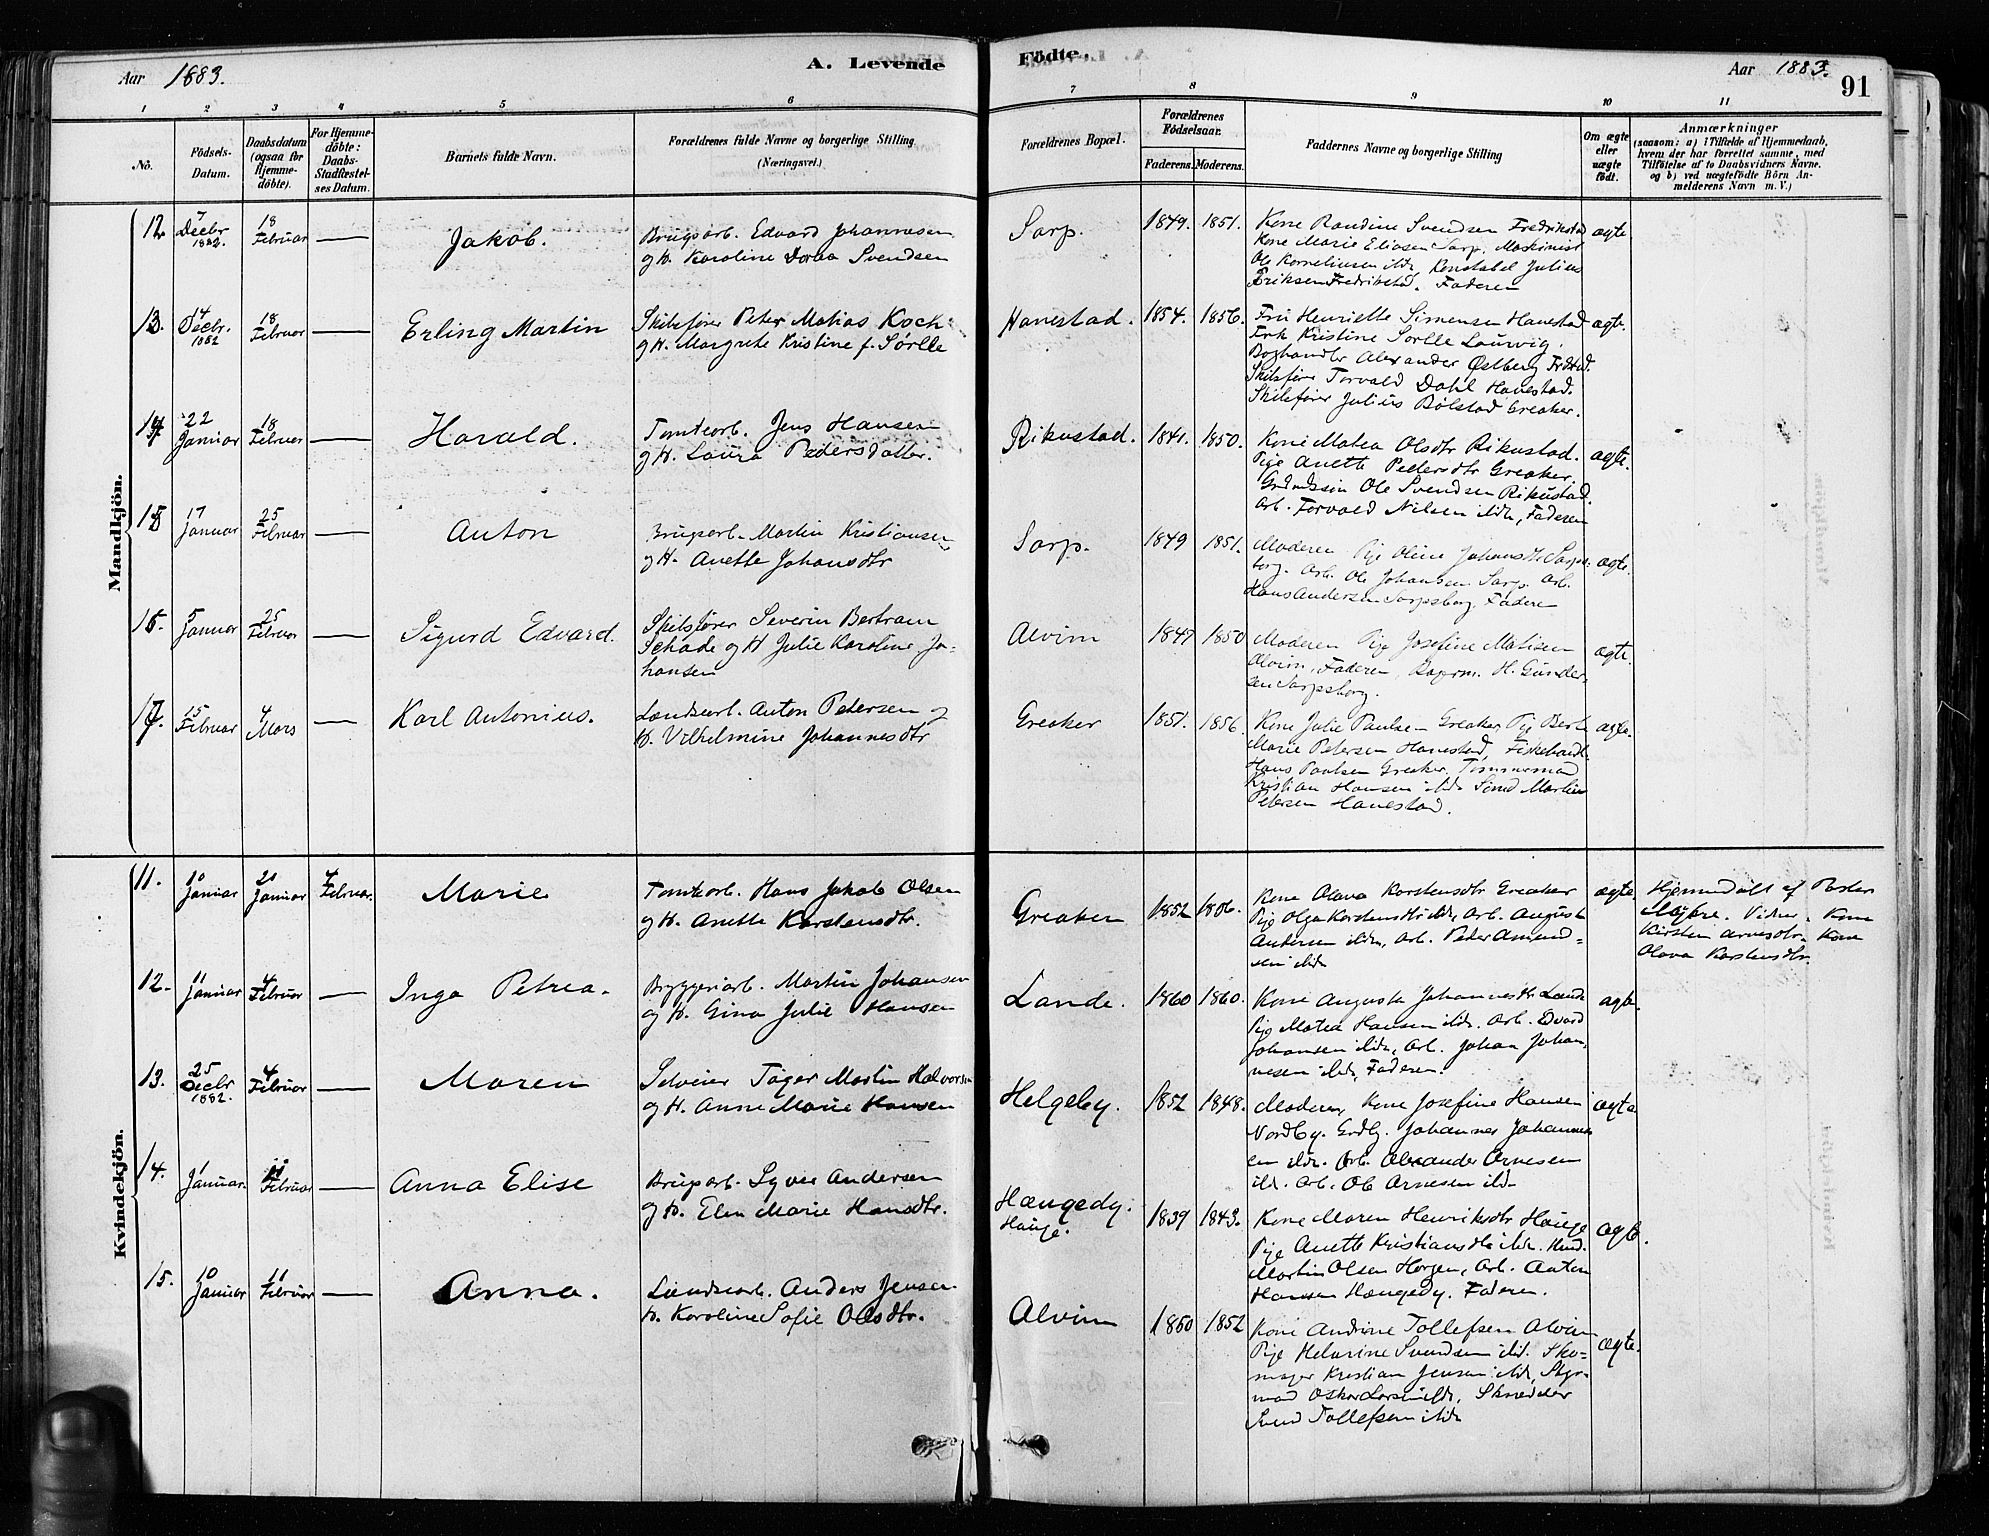 Aar 1883.
A. Levende Födte.
Aar 1883.
91
1 2 3 4 5 6 7 8 9 10 11
No.
Födsels-Datum.
Daabsdatum (ogsaa for Hjemme-döbte).
For Hjemme-döbte: Daabs-Stadfæstel-ses Datum.
Barnets fulde Navn.
Forældrenes fulde Navne og borgerlige Stilling (Næringsvei.)
Forældrenes Bopæl.
Forældrenes Födselsaar.
Faderens. Moderens.
Faddernes Navne og borgerlige Stilling
Om ægte eller uægte födt.
Anmærkninger
(saasom: a) i Tilfælde af Hjemmedaab,
hvem der har forrettet samme, med
Tilföielse af to Daabsvidners Navne.
og b) ved uægtefödte Börn An-
melderens Navn m. V.)
Mandkjön.
12. 7 Decbr 1882. 18 Februar — Jakob.
Brugsarb. Edvard Johannesen
og H. Karoline Dorthea Svendsen
Sarp. 1849. 1851.
Kone Randine Svendsen Fredrikstad
Kone Marie Eliasen Sarp, Maskinist
Ole Korneliusen ibid, Konstabel Julius
Eriksen Fredrikstad. Faderen
ægte
13. 14 Decbr. 1882 18 Februar — Erling Martin
Skibsfører Peter Matias Koch
og H. Margrete Kristine f. Sørlle
Hanestad. 1854. 1856.
Fru Henriette Simensen Hanestad
Frk Kristine Sørlle Laurvig.
Boghandler Alexander Østberg Frdstad.
Skibsfører Torvald Dahl Hanestad.
Skibsfører Julius Bølstad Greaker.
ægte.
14. 22 Januar 18 Februar — Harald.
Tomtearb. Jens Hansen
og H. Laura Pedersdatter.
Rikustad. 1841. 1850.
Kone Matea Olsdtr Rikustad.
Pige Anette Pedersdtr Greaker.
Ole Svendsen Rikustad.
Arb. Torvald Nilsen ibid, Faderen
ægte.
15 17 Januar 25 Februar — Anton
Brugsarb. Martin Kristiansen
og H. Anette Johansdtr
Sarp. 1849 1851.
Moderen Pige Oline Johansdtr Sarps-
borg. Arb. Ole Johansen Sarp. Arb.
Hans Andersen Sarpsborg, Faderen
ægte.
16. 5 Januar 25 Februar — Sigurd Edvard.
Skibsfører Severin Bertram
Schade og H Julie Karoline Jo-
hansen
Alvim 1847 1850
Moderen Pige Josefine Matisen
Alvim, Faderen, H. Gunder-
sen Sarpsborg.
ægte.
17. 15 Februar 4 Mars — Karl Antonius.
Landsarb. Anton Petersen og
H. Vilhelmine Johannesdtr
Greaker 1851. 1856.
Kone Julie Paulsen Greaker, Pige Berte
Marie Petersen Hanestad, Fiskehandl.
Hans Paulsen Greaker. Tømmermand
Kristian Hansen ibid Martin
Petersen Hanestad.
ægte.
Kvindekjön.
11. 10 Januar 20 Januar 4 Februar. Marie
Tomtearb. Hans Jakob Olsen
og H. Anette Karstensdtr.
Greaker 1852 1856.
Kone Olava Karstensdtr Greaker
Pige Olga Karstensdtr ibid, Arb. August
Andersen ibid, Arb. Peder Amund-
sen ibid
ægte.
Hjemmedøbt af
Vidner Kone
Kirsten Arnesdtr. Kone
Olava Karstensdtr.
12. 11 Januar 4 Februar — Inga Petrea.
Bryggeriarb. Martin Johansen
og H. Gina Julie Hansen
Lande. 1860 1860.
Kone Auguste Johannesdtr Lande
Pige Matea Hansen ibid. Arb. Edvard
Johansen ibid, Arb. Johan Johan-
nesen ibid, Faderen.
ægte.
13. 25 Decbr 1882. 4 Februar — Maren
Selveier Tøger Martin Halvorsen
og H. Anne Marie Hansen
Helgeby. 1852 1848.
Moderen, Kone Josefine Hansen
Nordby. Grdbr. Johannes Johannes-
en ibid. Arb. Alexander Arnesen
ibid. Arb. Ole Arnesen ibid
ægte
14. 1 Januar. 11 Februar — Anna Elise
Brugsarb. Syver Andersen
og H. Elen Marie Hansdtr.
Hængedy. Hauge. 1839 1843.
Kone Maren Henriksdtr Hauge
Pige Anette Kristiansdtr ibid.
Martin Olsen Horgen, Arb. Anton
Hansen Hængedy. Faderen.
ægte.
15. 10 Januar 11 Februar — Anna.
Landsarb. Anders Jensen
H. Karoline Sofie Olsdtr.
Alvim 1850 1852
Kone Andrine Tollefsen Alvim
Pige Helarine Svendsen ibid. Sko-
mager Kristian Jensen ibid, Styr-
mand Oskar Larsen ibid, Skrædder
Tollefsen ibid
ægte.